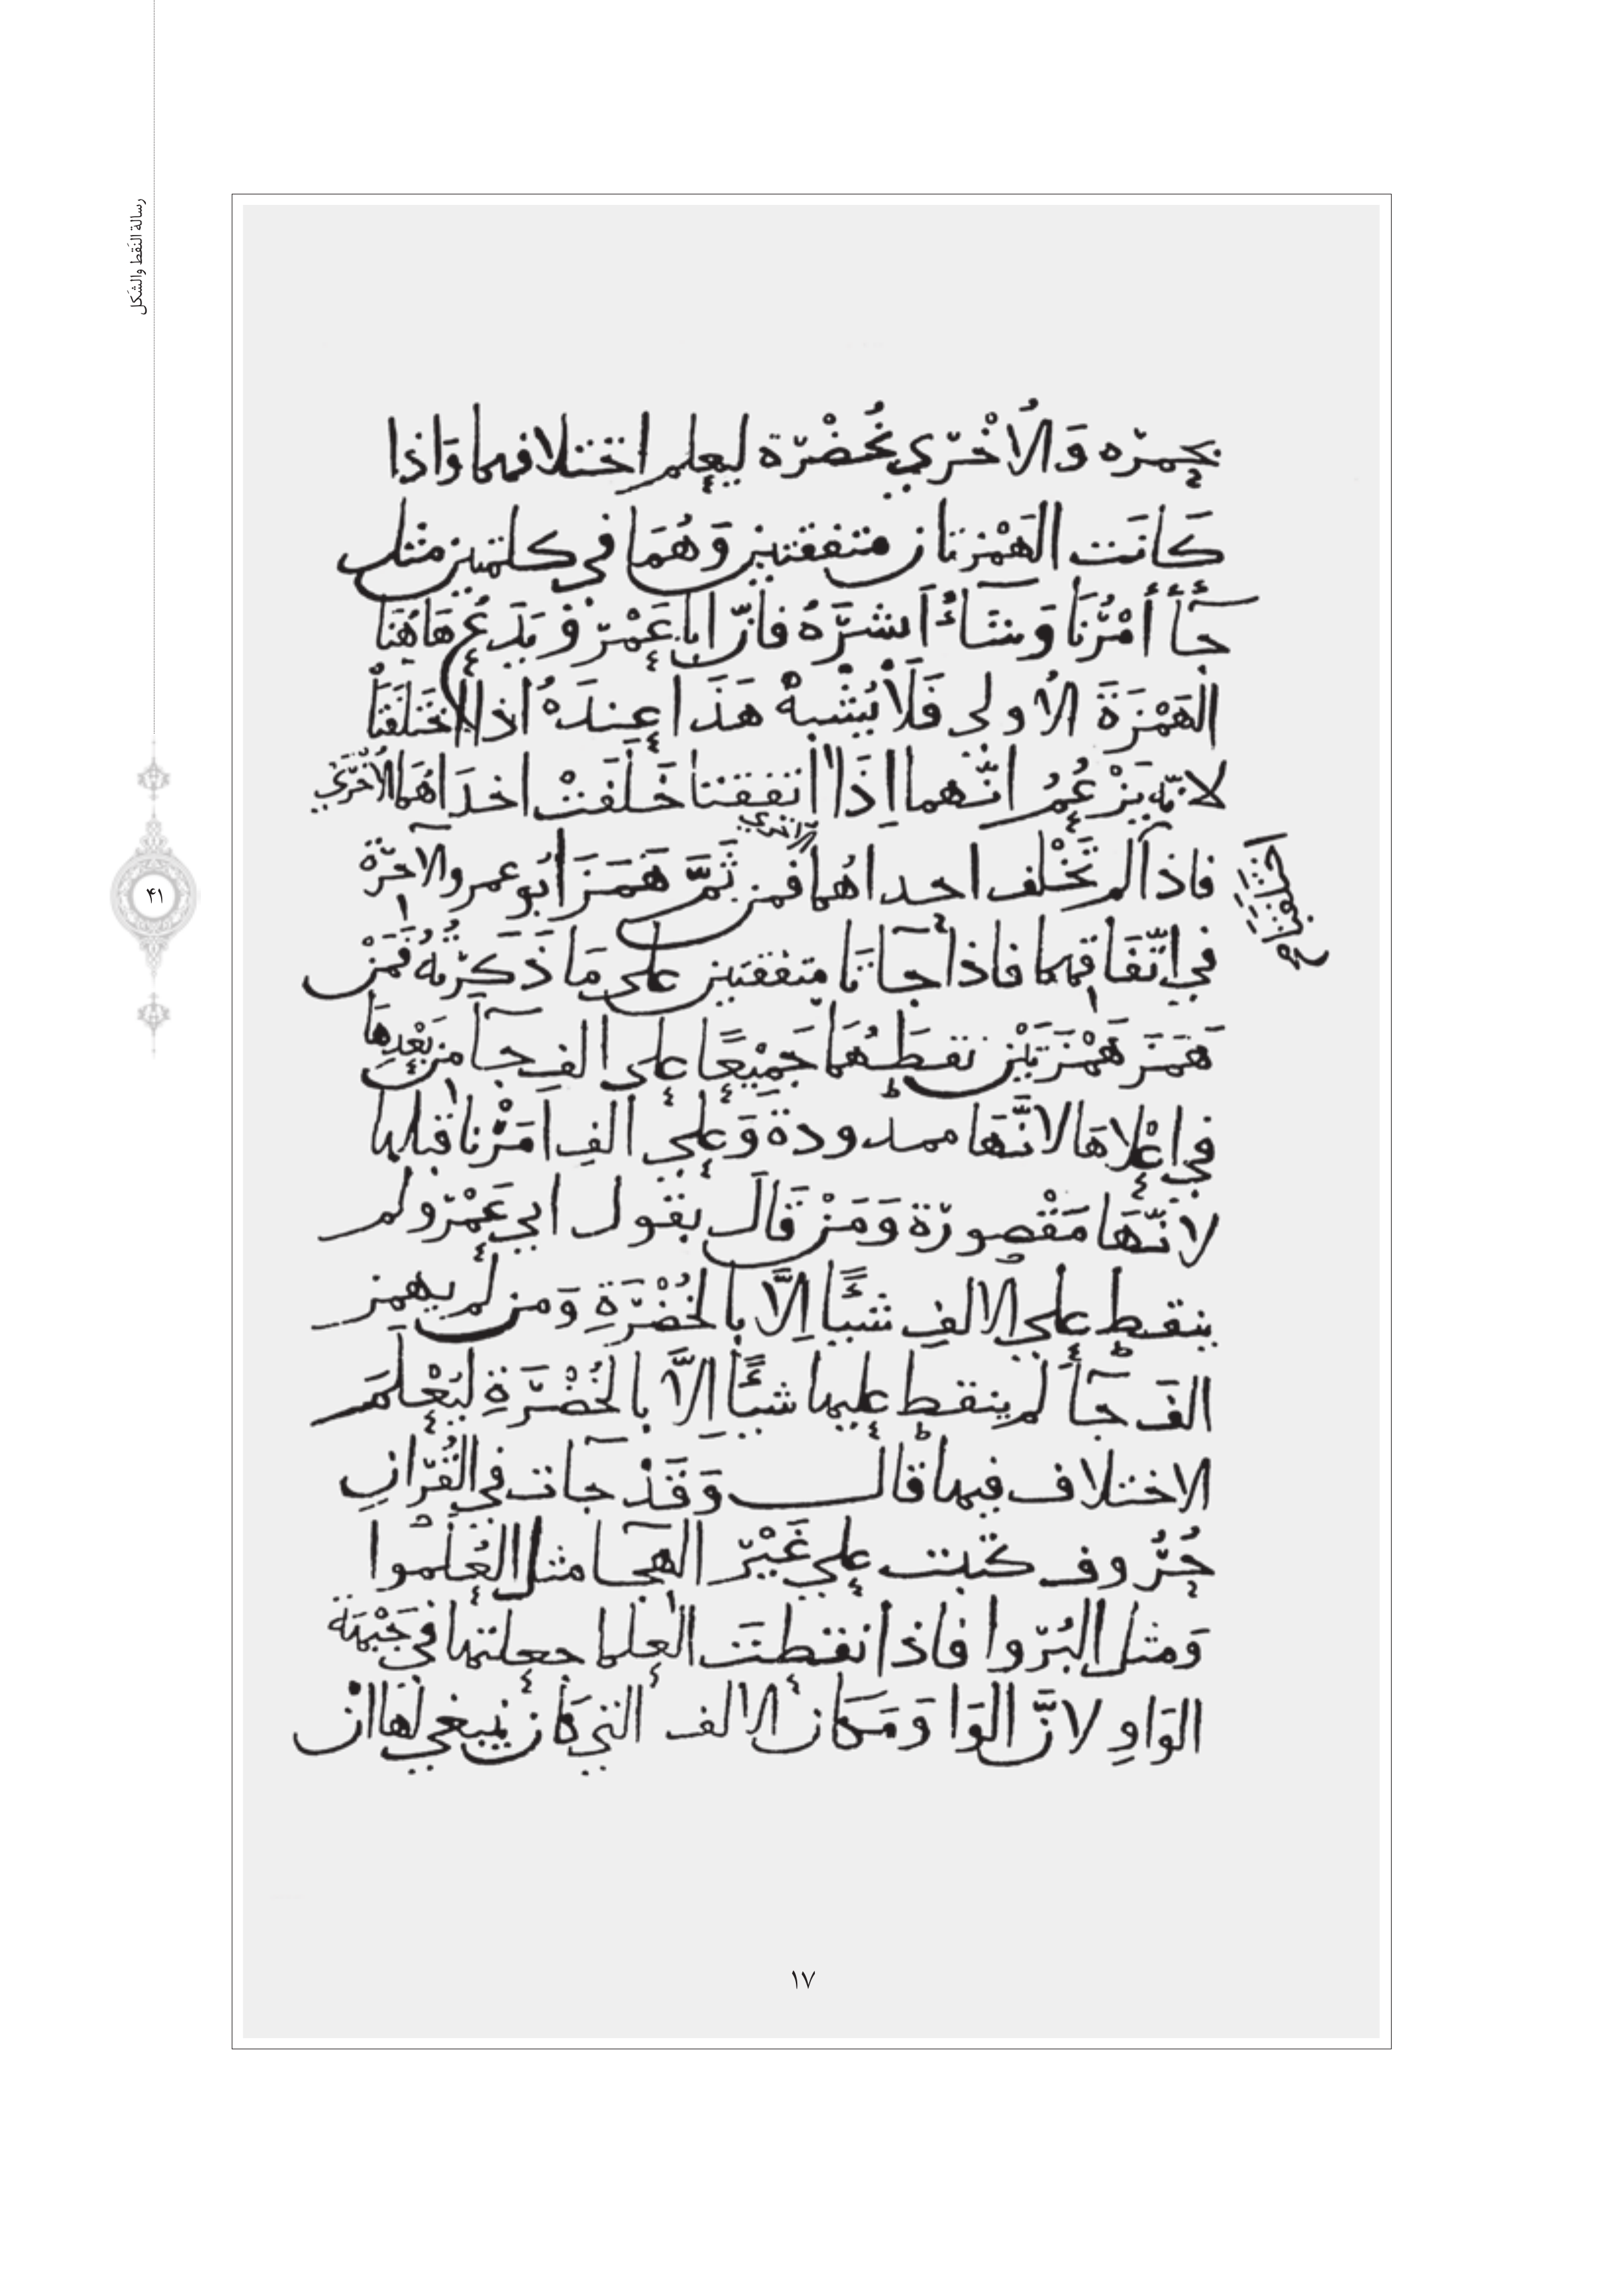 رسالة النَقط والشَكل
۴۱
بحمره وَالاُخْرَي بخُضْرَة ليعلم اختلافهما وَاذا
كَانَت الهَمْزتان متفقتين وَهُمَا في كلمتين مثل
جآأَ أَمْرُنَا وَ أَنشَرَهُ فان ابا عَمْرٍو يَدَعُ هَاهُنَا
الهَمْزَةَ الاُولى فَلَا يُشْبهُ هَذَا عِندَهُ اذا اختَلَفَتَا
لانّه يَزْعُمُ انّهما اِذَا اتفقتا خَلَفَتْ احدَاهُمَا الاُخْرَي
فاذا لم تَخْلف احداهُما الاخري فمن ثَمَّ هَمَزَ ابُو عمرو والآخِرَة
في اتّفَاقهما فاذا جآتَا متفقتين على مَا ذَكَرْتُه فَمَن
هَمَزَ هَمْزَتَيْن نقطَهُمَا جَمِيْعًا على الفِ جآ من بَعْدِهَا
في اعْلاهَا لانَّهَا ممدودة وَعَلي الفِ امْرُنا قبلها
لانّهَا مَقْصورَة وَمَنْ قَالَ بقول ابي عَمْرو لم
ينقط علي الالفِ شيئًا اِلَّا بالخُضْرَةِ وَمن لم يهمز
الفَ جآأَ لم ينقط عليها شيئًا الَّا بالخُضْرَةِ ليُعْلَمَ
الاختلاف فيها قال وَقَدْ جآت في القُرَانِ
حُرُوف كتبت علي غَيْرِ الهجآ مثل العُلَموا
وَمثل البُرَوا فاذا نقطتَ العلما جعلتها في جَبْهَة
الوَاوِ لانَّ الوَاوَ مَكَان الالف التي كَان ينبغي لها ان
١٧